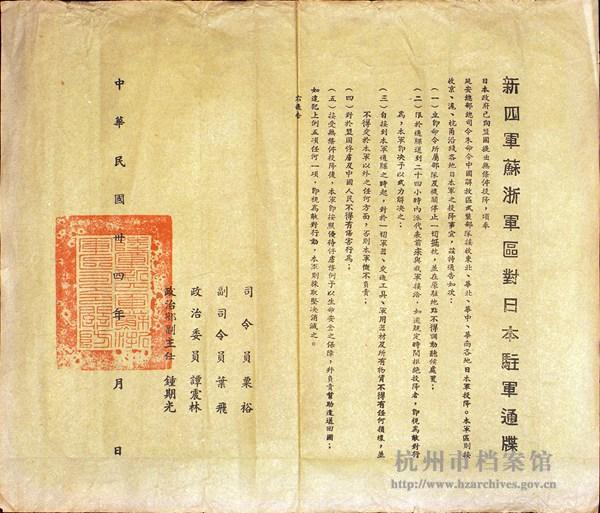 新四軍蘇浙軍區對日本駐軍通牒
日本政府已向盟國提出無條件投降，頃奉
延安總部總司令朱命令中國解放區武裝部隊接收東北、華北、華中、華南各地日本軍投降。本軍區則接
收京、滬、杭甬沿綫各地日本軍之投降事宜，茲特通告如次：
（一）立即命令所屬部隊及機關停止一切抵抗，並在原駐地點不得調動聽候處置；
（二）限於通牒送到二十四小時內派代表前來與我軍接洽，如逾規定時間拒絕投降者，即視為敵對行
為，本軍即決予以武力解決之；
（三）自接到本軍通牒之時起，對於一切軍器、交通工具、軍用器材及所有物資不得有任何損壞，並
不得交於本軍以外之任何方面，否則本軍概不負責；
（四）對於盟國俘虜及中國人民不得有傷害行為；
（五）接受無條件投降後，本軍即按照優待俘虜條例予以生命安全之保障，并負責幫助遣送回國；
如違犯上例五項任何一項，即視為敵對行動，本軍則採取堅決消滅之。
右通告
司令員 粟裕
副司令員 葉飛
政治委員 譚震林
政治部副主任 鍾期光
中華民國卅四年 月 日
杭州市档案馆
http://www.hzarchives.gov.cn